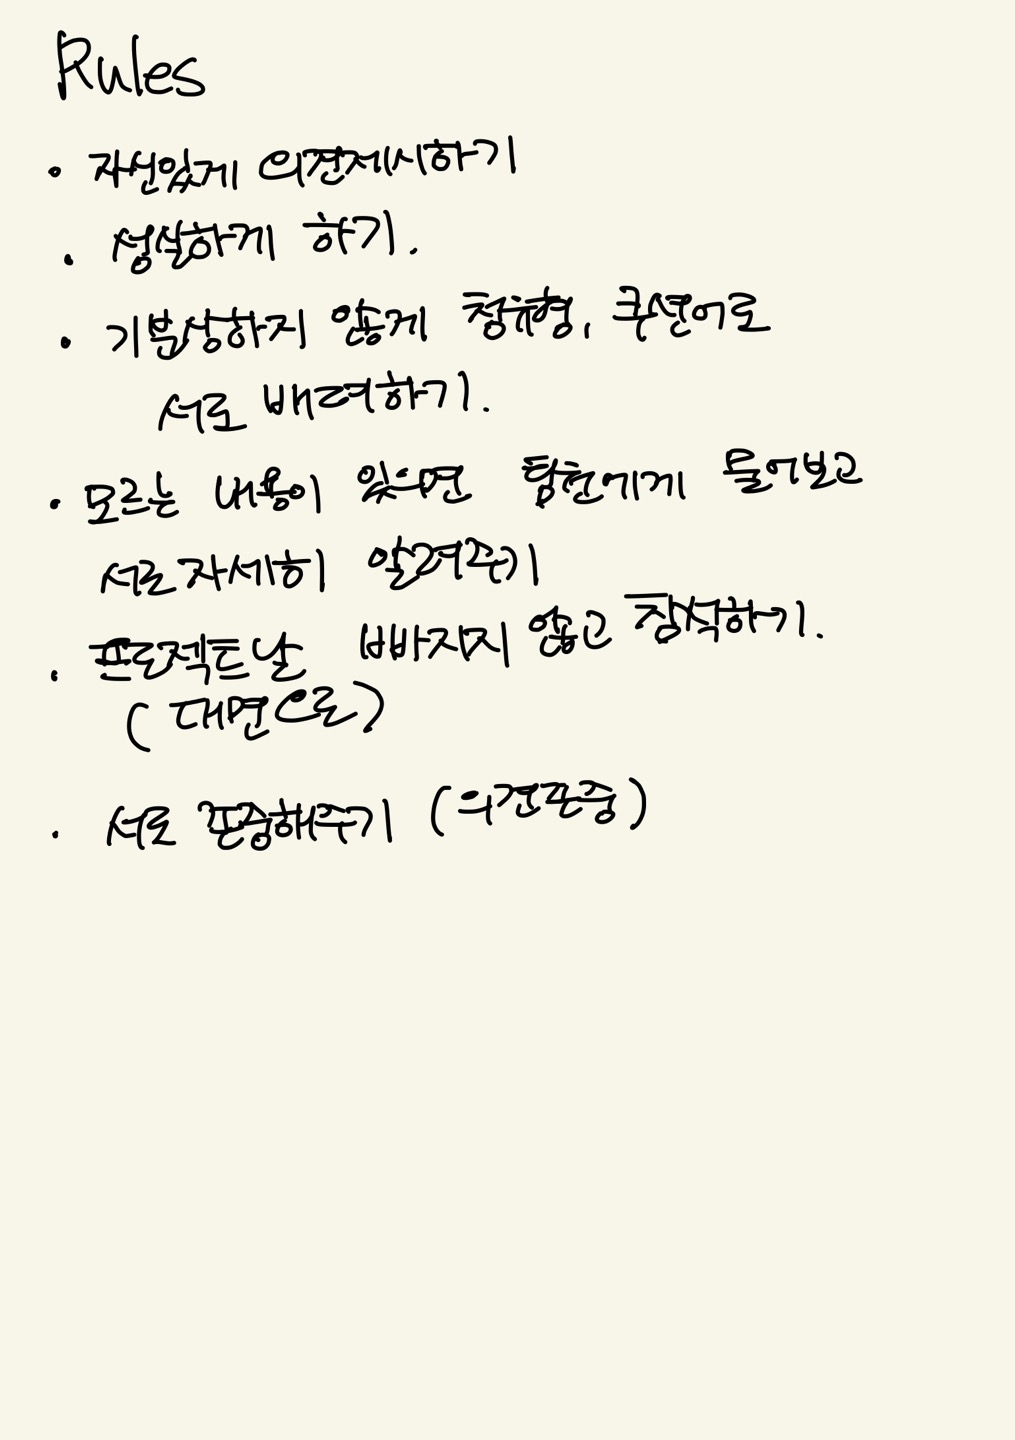 Rules
• 자신있게 의견제시하기
• 성실하게 하기.
• 기분상하지 않게 청유형, 쿠션어로
서로 배려하기.
• 모르는 내용이 있으면 팀원에게 물어보고
서로 자세히 알려주기
• 프로젝트날 빠지지 않고 참석하기.
(대면으로)
• 서로 존중해주기 (의견존중)